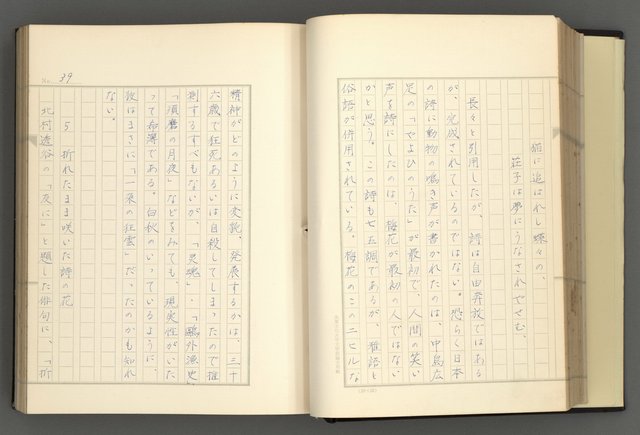 猫に追はれし蝶々の、
荘子は夢にうなされやせむ、
長々と引用したが、詩は自由奔放ではある
が、完成されているのではない。恐らく日本
の詩に動物の鳴き声が書かれたのは、中島広
足の「やよひのうた」が最初で、人間の笑い
声を詩にしたのは、梅花が最初の人ではない
かと思う。この詩も七五調であるが、雅語と
俗語が併用されている。梅花のこのニヒルな
No. 39
精神がどのように変貌、発展するかは、三十
六歳で狂死あるいは自殺してしまったので推
測するすべもないが、「灵魂」・「鷗外漁史」
「須磨の月夜」などをみても、現実性がいた
って希薄である。白秋のいっているように、
彼はまさに「一朶の狂雲」だったのかも知れ
ない。
5 折れたまま咲いた詩の花
北村透谷の「友に」と題した俳句に、「折